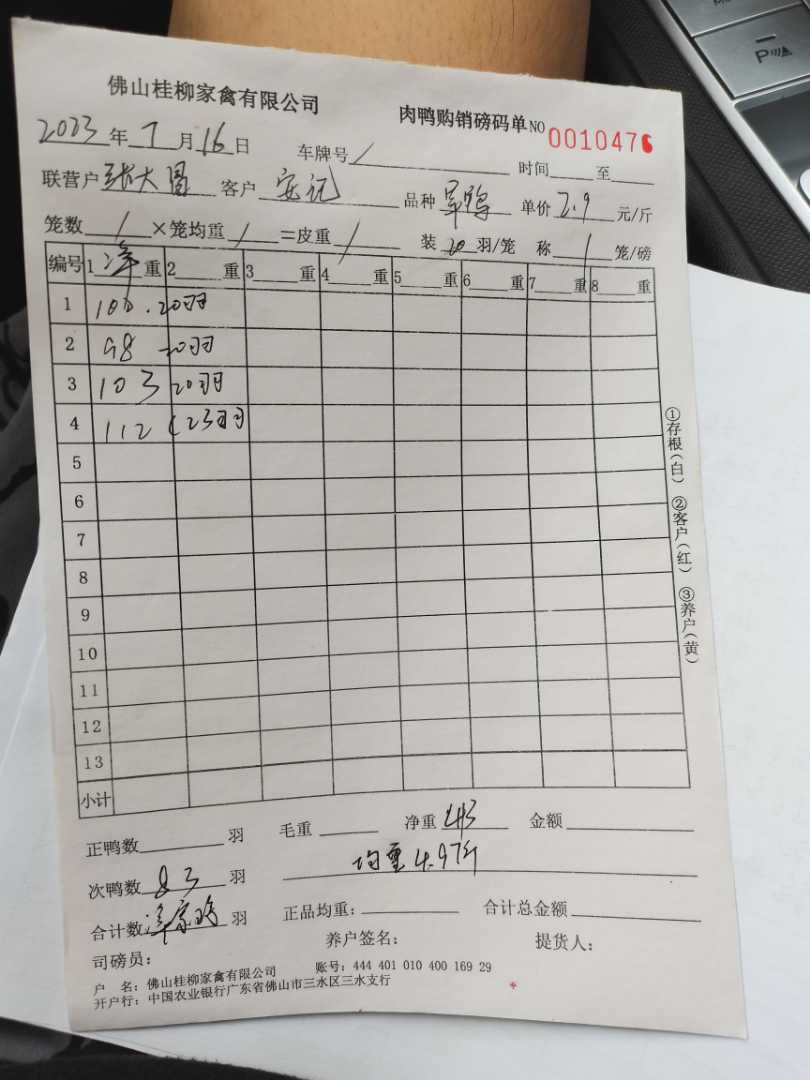 佛山桂柳家禽有限公司 肉鸭购销磅码单 NO 0010476
2023年7月16日 车牌号/ 时间 至
联营户 张大 客户 安记 品种 单价 2.9 元/斤
笼数 / ×笼均重 / =皮重 / 装 20 羽/笼 称 1 笼/磅
编号 1 净重 2 重 3 重 4 重 5 重 6 重 7 重 8 重
1 100. 20羽
2 98 20羽
3 103 20羽
4 112 (23羽
5
6
7
8
9
10
11
12
13
小计
①存根(白) ②客户(红) ③养户(黄)
正鸭数 羽 毛重 净重 413 金额
次鸭数 83 羽 均重4.97斤
合计数 羽 正品均重: 合计总金额
司磅员: 养户签名: 提货人:
户 名: 佛山桂柳家禽有限公司 账号: 444 401 010 400 169 29
开户行: 中国农业银行广东省佛山市三水区三水支行
P